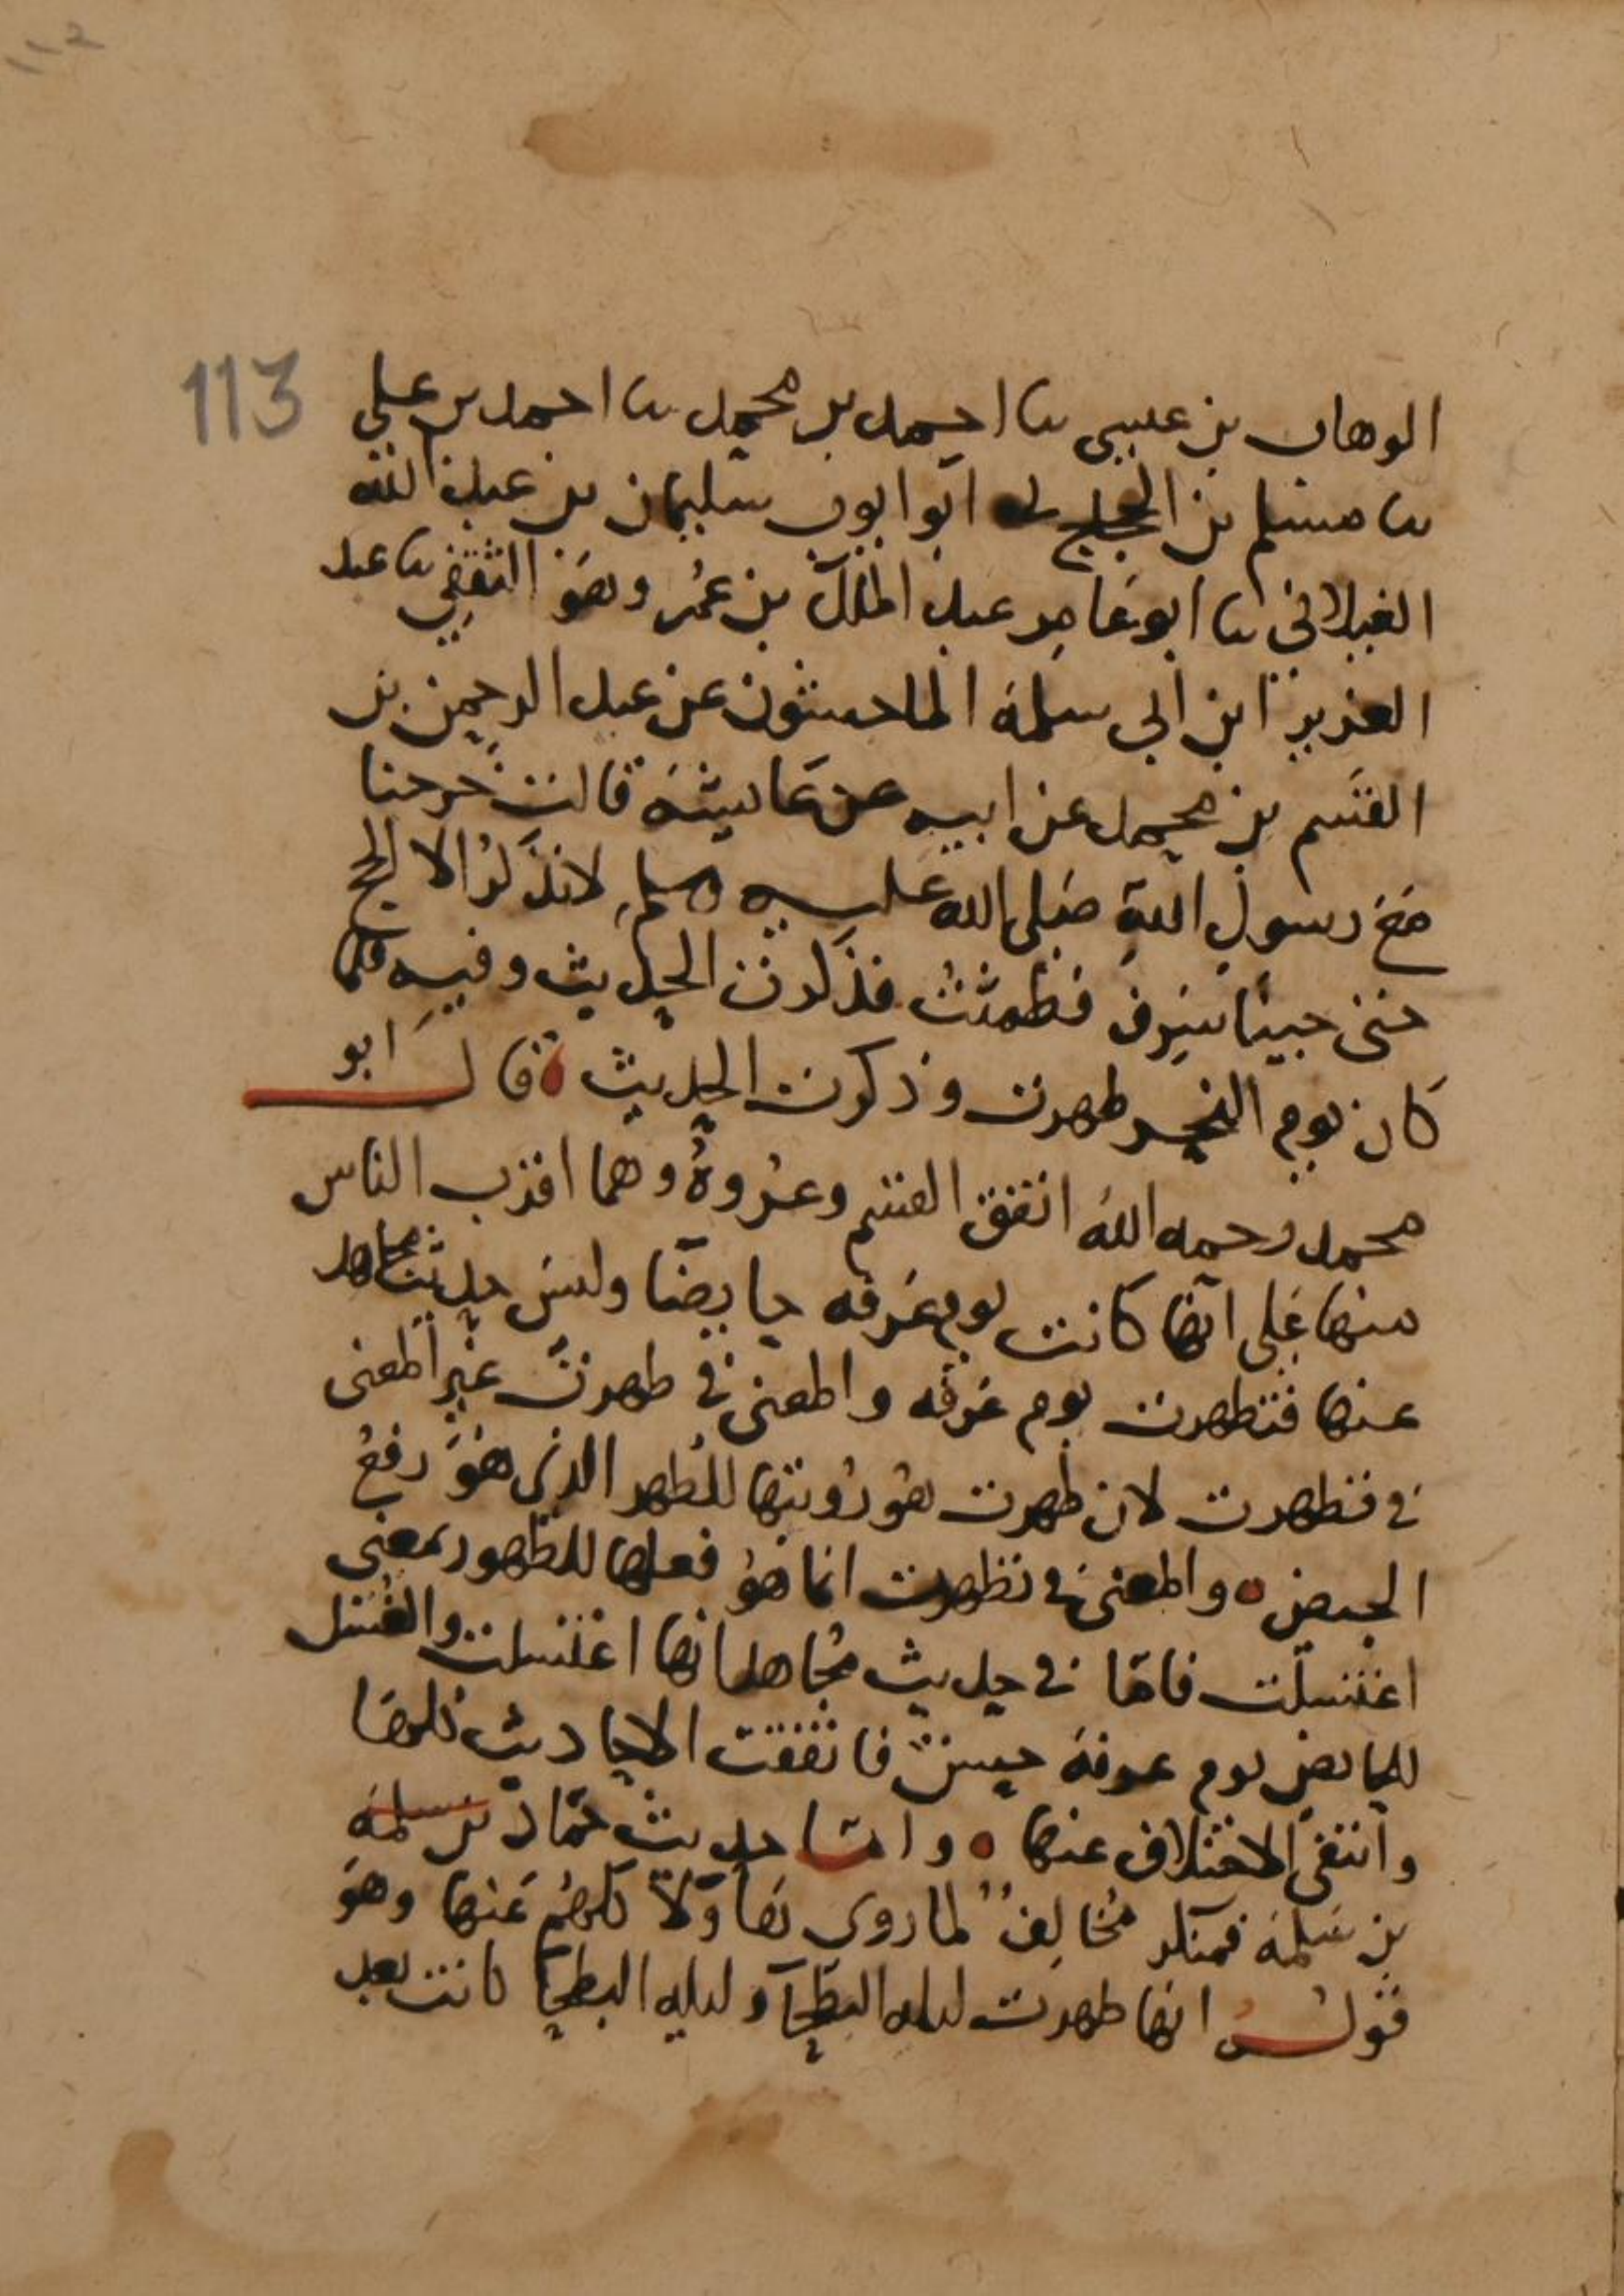 113
الوهاب بن عيسى نا احمد بن محمد نا احمد بن علي
نا مسلم بن الحجاج نا ابو ايوب سليمان بن عبد الله
الغيلاني نا ابو عامر عبد الملك بن عمرو هو الثقفي نا عبد
العزيز ابن ابي سلمة الماجشون عن عبد الرحمن بن
القسم بن محمد عن ابيه عن عايشة قالت خرجنا
مع رسول الله صلى الله عليه وسلم لا نذكر الا الحج
حتى جينا سرف فطمثت فذكرت الحديث وفيه فلما
كان يوم النحر طهرت وذكرت الحديث ه قال ابو
محمد رحمه الله اتفق القسم وعروة وهما اقرب الناس
منها على انها كانت يوم عرفه حايضا وليس حديث مجاهد
عنها فتطهرت يوم عرفه والمعنى في طهرت غير المعنى
في فتطهرت لان طهرت هو رؤيتها للطهر الذي هو رفع
الحيض ه والمعنى في تطهرت انما هو فعلها للطهور بمعنى
اغتسلت فانما في حديث مجاهد انها اغتسلت والغسل
للحايض يوم عرفة حسن فاتفقت الاحاديث كلها
وانتفى الاختلاف عنها ه واما حديث حماد بن سلمة
بن سلمة فمنكر مخالف لما روى هاولا كلهم عنها وهو
قوله انها طهرت ليله البطحآ وليله البطحآ كانت بعد